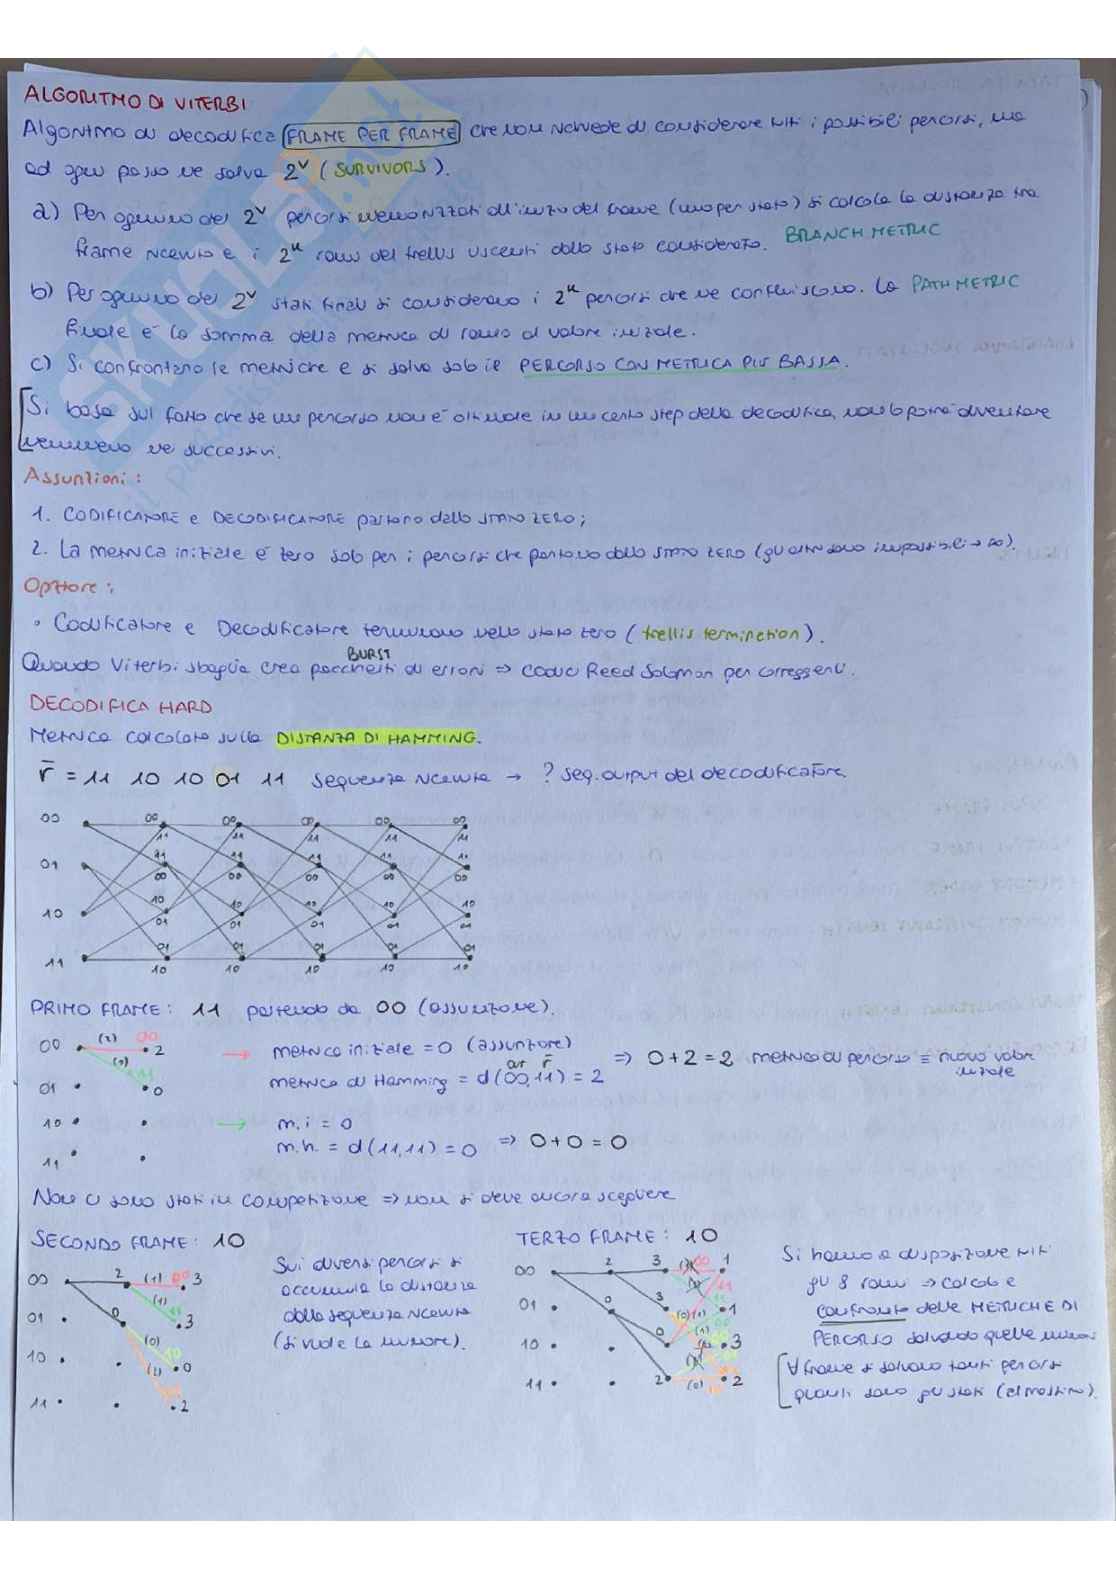 ALGORITMO DI VITERBI
Algoritmo di decodifica FRAME PER FRAME che non richiede di considerare tutti i possibili percorsi, ma
ad ogni passo ne salva 2^v (SURVIVORS).
a) Per ognuno dei 2^v percorsi memorizzati all'inizio del frame (uno per stato) si calcola la distanza tra
frame ricevuto e i 2^k rami del trellis uscenti dallo stato considerato. BRANCH METRIC
b) Per ognuno dei 2^v stati finali si considerano i 2^k percorsi che ne confluiscono. La PATH METRIC
finale è la somma della metrica di ramo al valore iniziale.
c) Si confrontano le metriche e si salva solo il PERCORSO CON METRICA PIÙ BASSA.
Si basa sul fatto che se un percorso non è ottimale in un certo step della decodifica, non lo potrà diventare
nemmeno nei successivi.
Assunzioni:
1. CODIFICATORE e DECODIFICATORE partono dallo STATO ZERO;
2. La metrica iniziale è zero solo per i percorsi che partono dallo STATO ZERO (gli altri sono impossibili → ∞).
Opzione:
• Codificatore e Decodificatore terminano nello stato zero (trellis termination).
BURST
Quando Viterbi sbaglia crea pacchetti di errori ⇒ codici Reed Solomon per correggerli.
DECODIFICA HARD
Metrica calcolata sulla DISTANZA DI HAMMING.
r̄ = 11 10 10 01 11 sequenza ricevuta → ? seq. output del decodificatore.
00 00 00 00 00 00
11 11 11 11 11
01 11 11 11 10
00 00 00 00 00
10 10 10 10 10 10
01 01 01 01 01
11 01 01 01 01 01
10 10 10 10 10
PRIMO FRAME: 11 partendo da 00 (assunzione).
00 (2) 00 2
(0) 11
01 0
10
11
→ metrica iniziale = 0 (assunzione)
out r̄
metrica di Hamming = d(00,11) = 2 ⇒ 0+2=2 metrica di percorso ≡ nuovo valore
iniziale
→ m.i = 0
m.h. = d(11,11) = 0 ⇒ 0+0=0
Non ci sono stati in competizione ⇒ non si deve ancora scegliere
SECONDO FRAME: 10
00 2 (1) 00 3
(1) 11
01 0 3
(0) 10
10 (2) 0
11 2
Sui diversi percorsi si
accumula la distanza
dalla sequenza ricevuta
(si vuole la minore).
TERZO FRAME: 10
00 2 3 00 1
01 0 3 1
10 0 3
11 2 (0) 2
Si hanno a disposizione tutti
gli 8 rami ⇒ calcolo e
confronto delle METRICHE DI
PERCORSO salvando quelle minori
∀ frame si salvano tanti percorsi
quanti sono gli stati (al massimo).